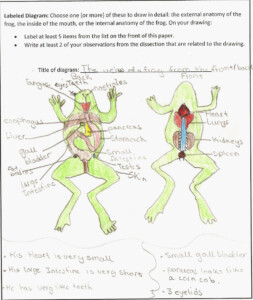 Labeled Diagram: Choose one (or more) of these to draw in detail: the external anatomy of the
frog, the inside of the mouth, or the internal anatomy of the frog. On your drawing:
• Label at least 5 items from the list on the front of this paper.
• Write at least 2 of your observations from the dissection that are related to the drawing.
Title of diagram: The of a frog from the front/back
Back
Front
eyes teeth nostrils
esophagus
Liver
gall
bladder
large
Intestine
pancreas
Stomach
Small
Intestine
testes
Skin
Heart
Lungs
Kidneys
Spleen
- His Heart is very small
- His large Intestine is very short
- He has very little teeth
- Small gall bladder
- pancreas looks like
a corn cob.
- 3 eyelids